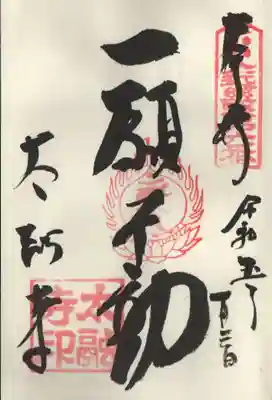 奉拝
令和五年
一月二日
一願不動
太融寺
太融
寺印